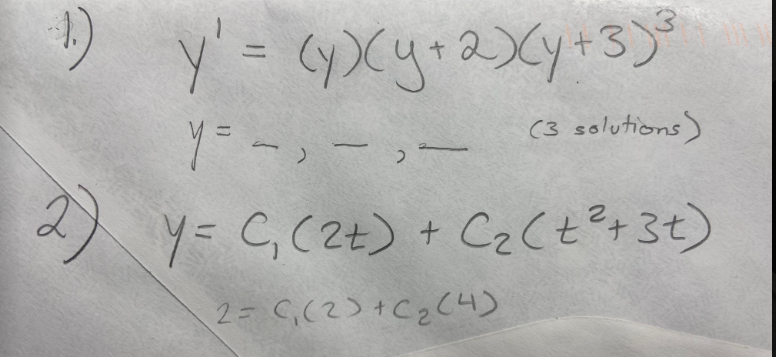 1.) y' = (y)(y+2)(y+3)³
y = _, _, _ (3 solutions)
2) y = C₁(2t) + C₂(t²+3t)
2 = C₁(2) + C₂(4)